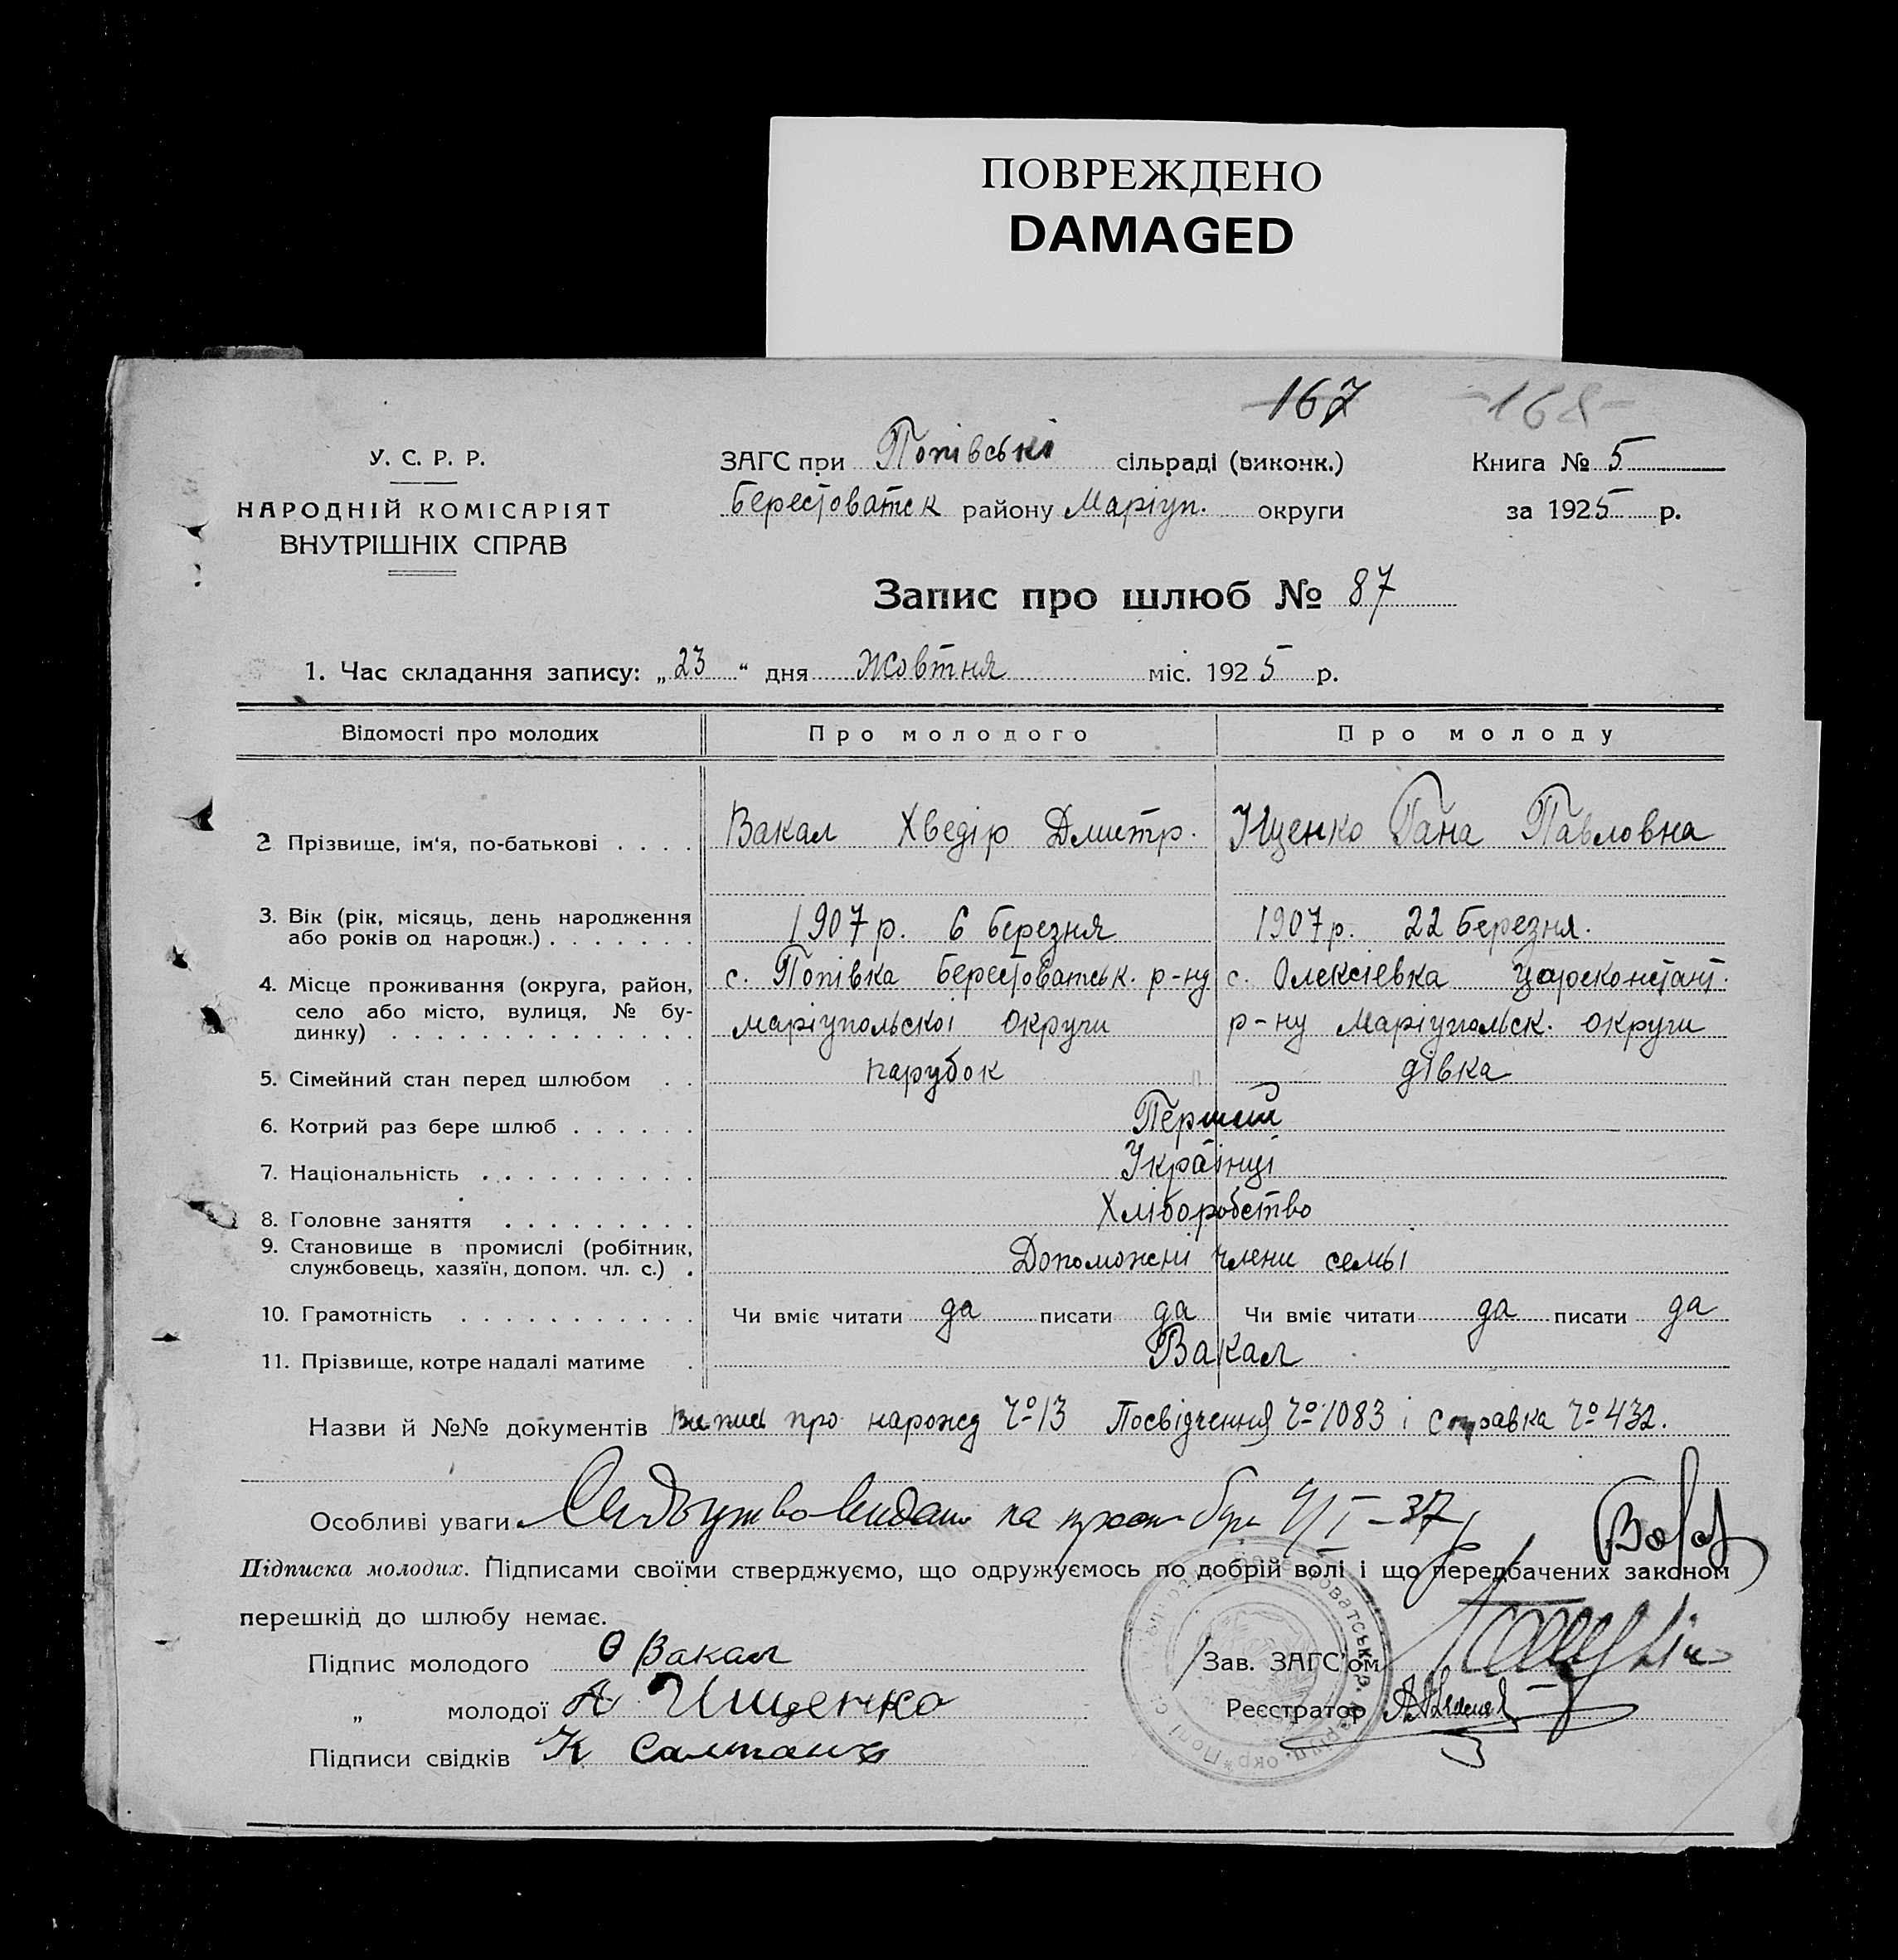 ПОВРЕЖДЕНО
DAMAGED
167 -168-
У. С. Р. Р.
НАРОДНІЙ КОМІСАРІЯТ
ВНУТРІШНІХ СПРАВ
ЗАГС при Попівські сільраді (виконк.)
Берестоватск району Маріуп. округи
Книга № 5
за 1925 р.
Запис про шлюб № 87
1. Час складання запису: „23“ дня Жовтня міс. 1925 р.
Відомості про молодих Про молодого Про молоду
2 Прізвище, ім'я, по-батькові . . . . Вакал Хведір Дмитр. Іщенко Гана Павловна
3. Вік (рік, місяць, день народження
або років од народж.) . . . . . . . 1907 р. 6 березня 1907 р. 22 березня.
4. Місце проживання (округа, район, с. Попівка Берестоватськ. р-ну с. Олексіевка Цареконстант.
село або місто, вулиця, № бу-
динку) . . . . . . . . . . . . . . маріупольскоі округи р-ну Маріупольск. округи
5. Сімейний стан перед шлюбом . . парубок дівка
6. Котрий раз бере шлюб . . . . . . Перший
7. Національність . . . . . . . . . . Українці
8. Головне заняття . . . . . . . . . Хліборобство
9. Становище в промислі (робітник,
службовець, хазяїн, допом. чл. с.) . Допоможні члени семьі
10. Грамотність . . . . . . . . . . . Чи вміє читати да писати да Чи вміє читати да писати да
11. Прізвище, котре надалі матиме . Вакал
Назви й №№ документів Випись про нарожд №13 Посвідчення №1083 і справка №432.
Особливі уваги 9/I-37
Підписка молодих. Підписами своїми стверджуємо, що одружуємось по добрій волі і що передбачених законом
перешкід до шлюбу немає.
Підпис молодого Ѳ Вакал
„ молодої А Ищенко
Підписи свідків К
Зав. ЗАГС'ом
Реєстратор